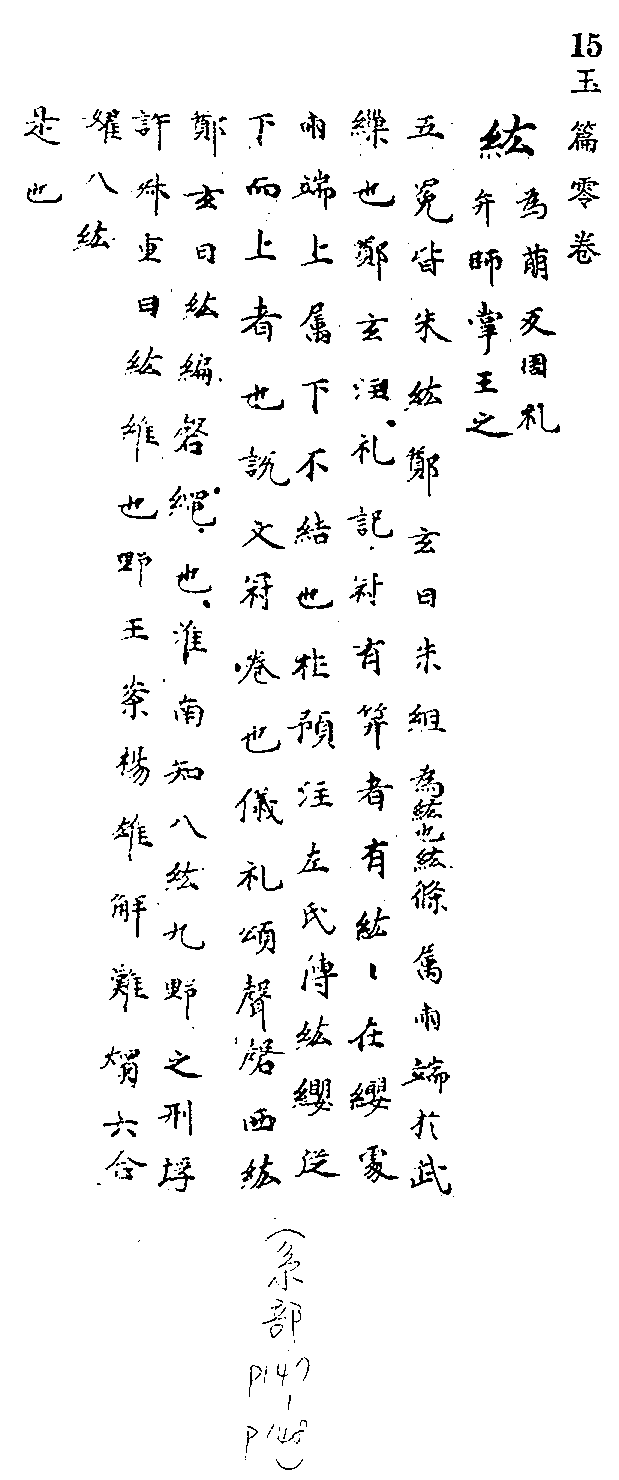 15 玉篇零卷
紘 為萠反周礼
弁師掌王之
五冕皆朱紘鄭玄曰朱組為紘也紘條属両端於武
繅也鄭玄注礼記冠有笄者有紘〻在纓處
両端上属下不結也杜預注左氏傳紘纓従
下而上者也說文冠卷也儀礼頌聲磬西紘
鄭玄曰紘編磬縄也淮南知八紘九野之刑埒
許叔重曰紘維也野王案楊雄解難𤑔六合
燿八紘
是也
(糸部 P147-P148)